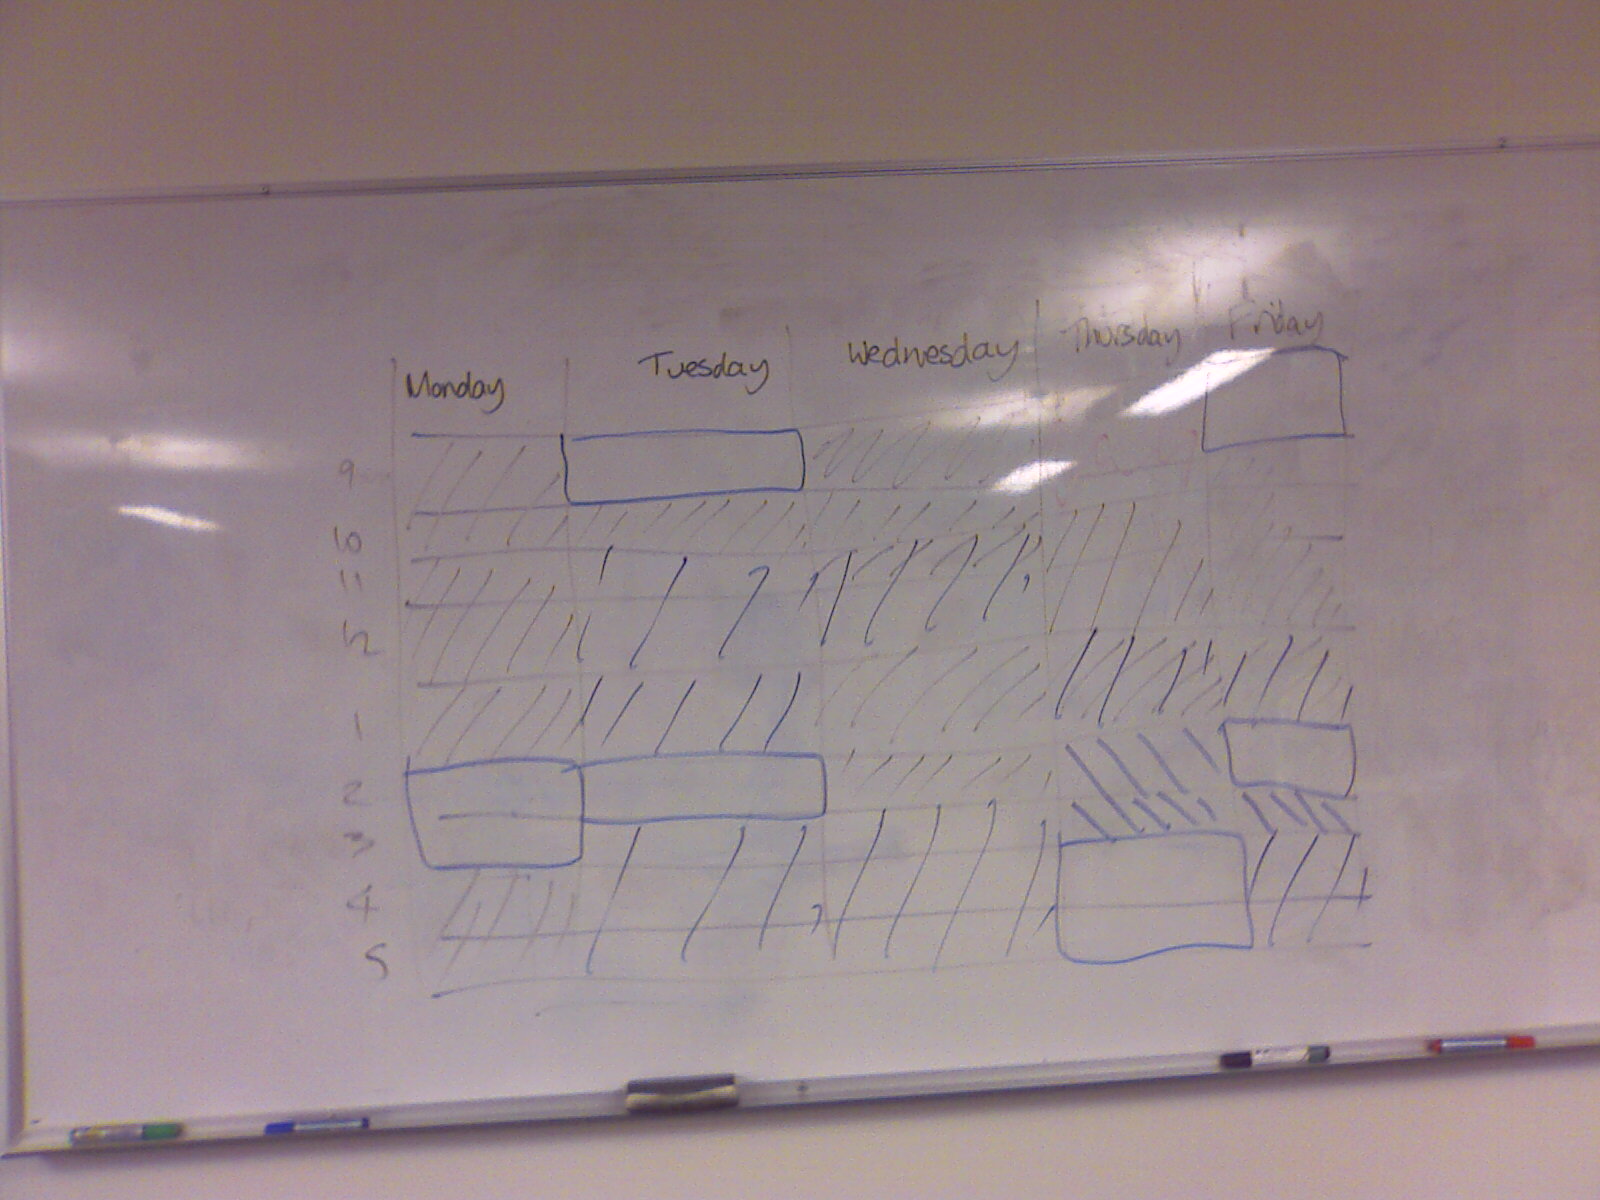 Monday Tuesday Wednesday Thursday Friday
9
10
11
12
1
2
3
4
5